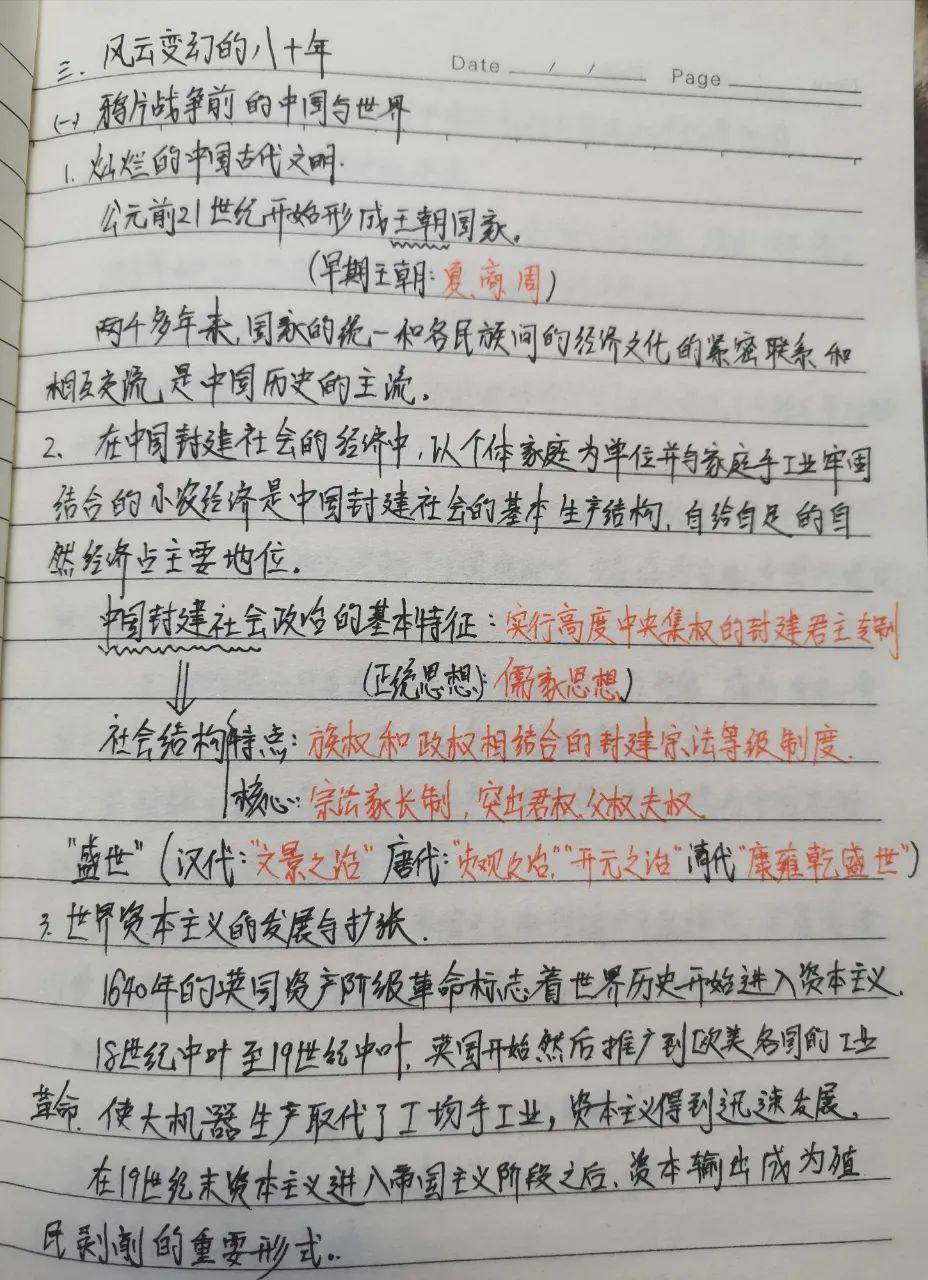 Date / / Page
三. 风云变幻的八十年
(一) 鸦片战争前的中国与世界
1. 灿烂的中国古代文明.
公元前21世纪开始形成王朝国家。
(早期王朝: 夏.商.周)
两千多年来,国家的统一和各民族间的经济文化的紧密联系和
相互交流,是中国历史的主流。
2. 在中国封建社会的经济中,以个体家庭为单位并与家庭手工业牢固
结合的小农经济是中国封建社会的基本生产结构,自给自足的自
然经济占主要地位。
中国封建社会政治的基本特征: 实行高度中央集权的封建君主专制
(正统思想: 儒家思想)
⇓
社会结构 特点: 族权和政权相结合的封建宗法等级制度.
核心: 宗法家长制, 突出君权.父权.夫权.
"盛世" (汉代:"文景之治" 唐代:"贞观之治""开元之治" 清代"康雍乾盛世")
3. 世界资本主义的发展与扩张.
1640年的英国资产阶级革命标志着世界历史开始进入资本主义.
18世纪中叶至19世纪中叶,英国开始然后推广到欧美各国的工业
革命.使大机器生产取代了工场手工业,资本主义得到迅速发展。
在19世纪末资本主义进入帝国主义阶段之后,资本输出成为殖
民剥削的重要形式。